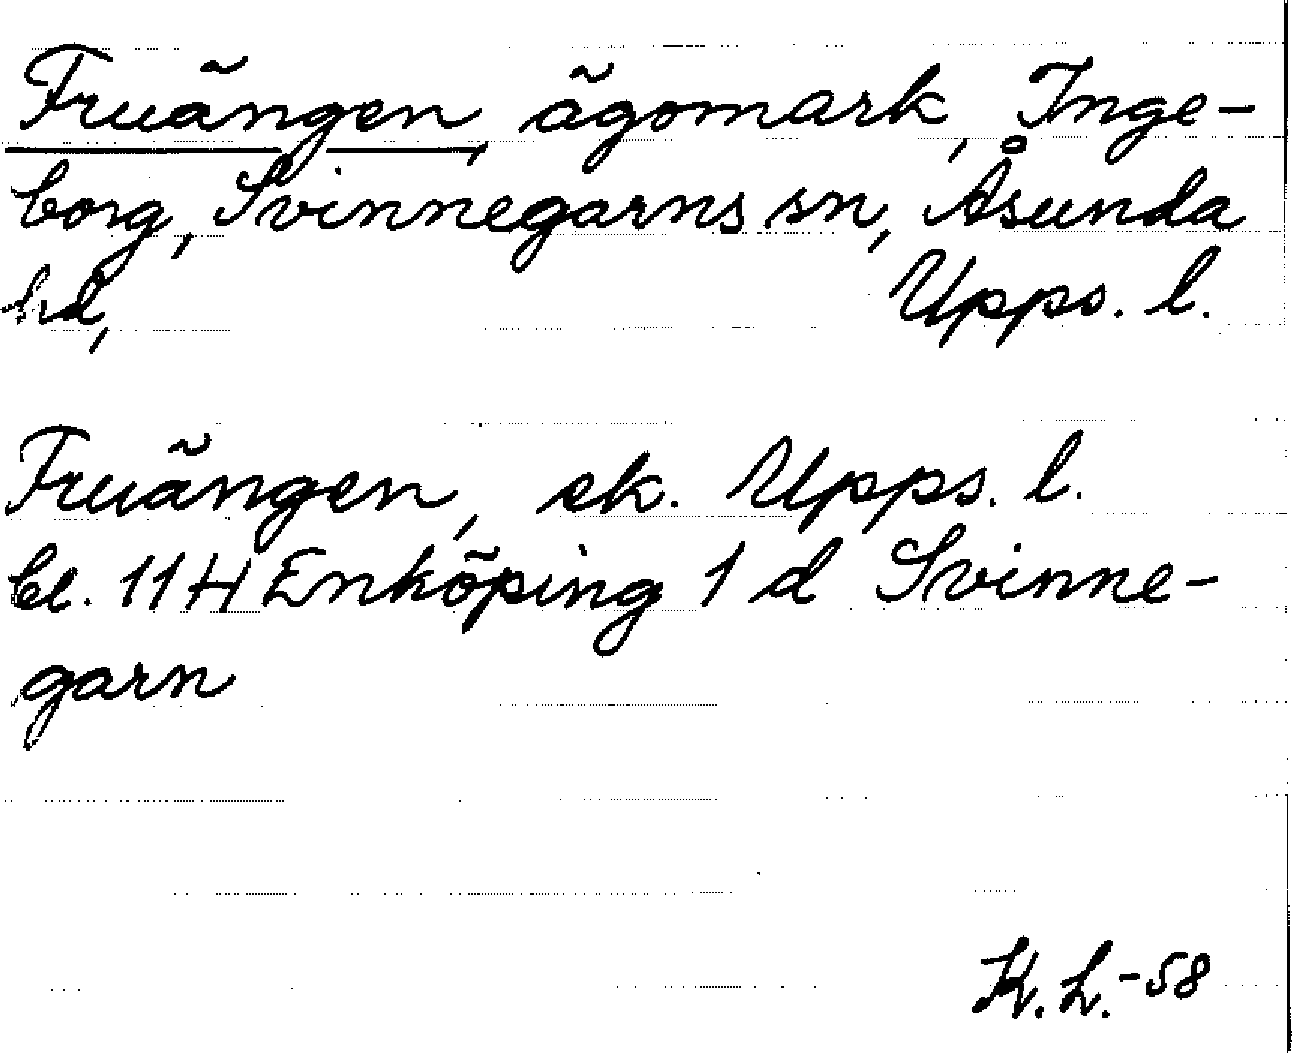 Fruängen, ägomark, Inge-
borg, Svinnegarns sn, Åsunda
hd, Upps. l.
Fruängen, ek. Upps. l.
bl. 11 H Enköping 1 d Svinne-
garn
K.L.-58